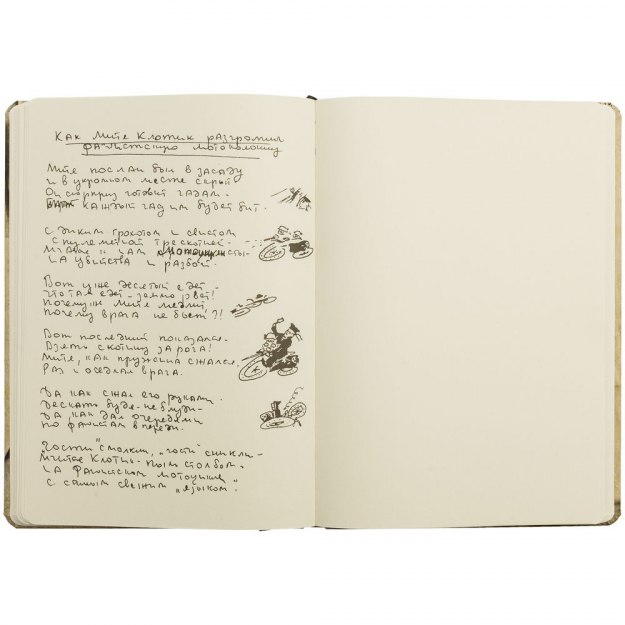 Как Митя Клотик разгромил
фашистскую мотоколонну
Митя послан был в засаду
и в укромном месте скрыт
Он сюрприз готовит гадам -
каждый гад им будет бит.
С диким грохотом и свистом
с пулеметной трескотней -
мчались к нам мотоциклисты -
на убийства и разбой.
Вот уже десятый едет -
что там едет - землю рвет!
Почему ж Митя медлит,
Почему врага не бьет?!
Вот последний показался -
Взять скотину за рога!
Митя, как пружина сжался,
Раз и оседлал врага.
Да как сжал его руками,
Дескать будя - не блуди -
Да как дал очередями
по фашистам впереди.
"Гости" смолкли, "гости" сникли -
мчится Клотик - пыль столбом -
на фашистском мотоцикле
с самым свежим "языком".